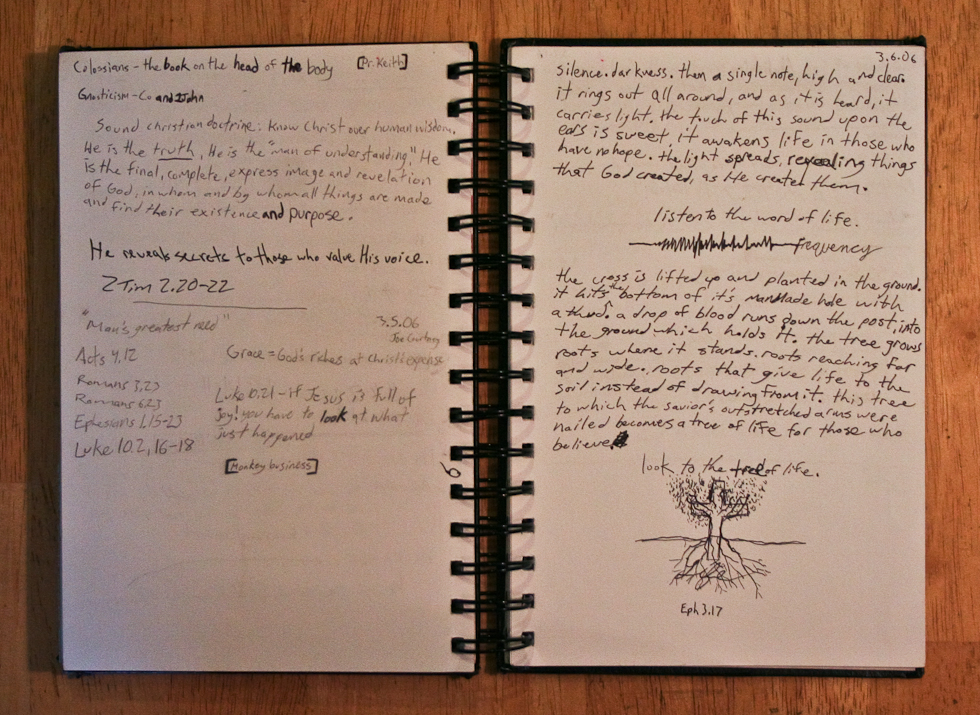 Colossians - the book on the head of the body [Pr. Keith]
Gnosticism - Co and 1John
Sound christian doctrine: know Christ over human wisdom.
He is the truth, He is the "man of understanding," He
is the final, complete, express image and revelation
of God, in whom and by whom all things are made
and find their existence and purpose.
He reveals secrets to those who value His voice.
2 Tim 2.20-22
"Man's greatest need"
3.5.06
Joe Courtney
Acts 4.12
Romans 3.23
Romans 6.23
Ephesians 1.15-23
Luke 10.2, 16-18
Grace = God's riches at Christ's expense
Luke 10.21 - if Jesus is full of
joy! you have to look at what
just happened
[Monkey business]
3.6.06
silence. darkness. then a single note, high and clear.
it rings out all around, and as it is heard, it
carries light. the touch of this sound upon the
ears is sweet, it awakens life in those who
have no hope. the light spreads, revealing things
that God created, as He creates them.
listen to the word of life.
frequency
the cross is lifted up and planted in the ground.
it hits the bottom of it's manmade hole with
a thud. a drop of blood runs down the post, into
the ground which holds it. the tree grows
roots where it stands. roots reaching far
and wide. roots that give life to the
soil instead of drawing from it. this tree
to which the savior's outstretched arms were
nailed becomes a tree of life for those who
believe
look to the tree of life.
Eph 3.17